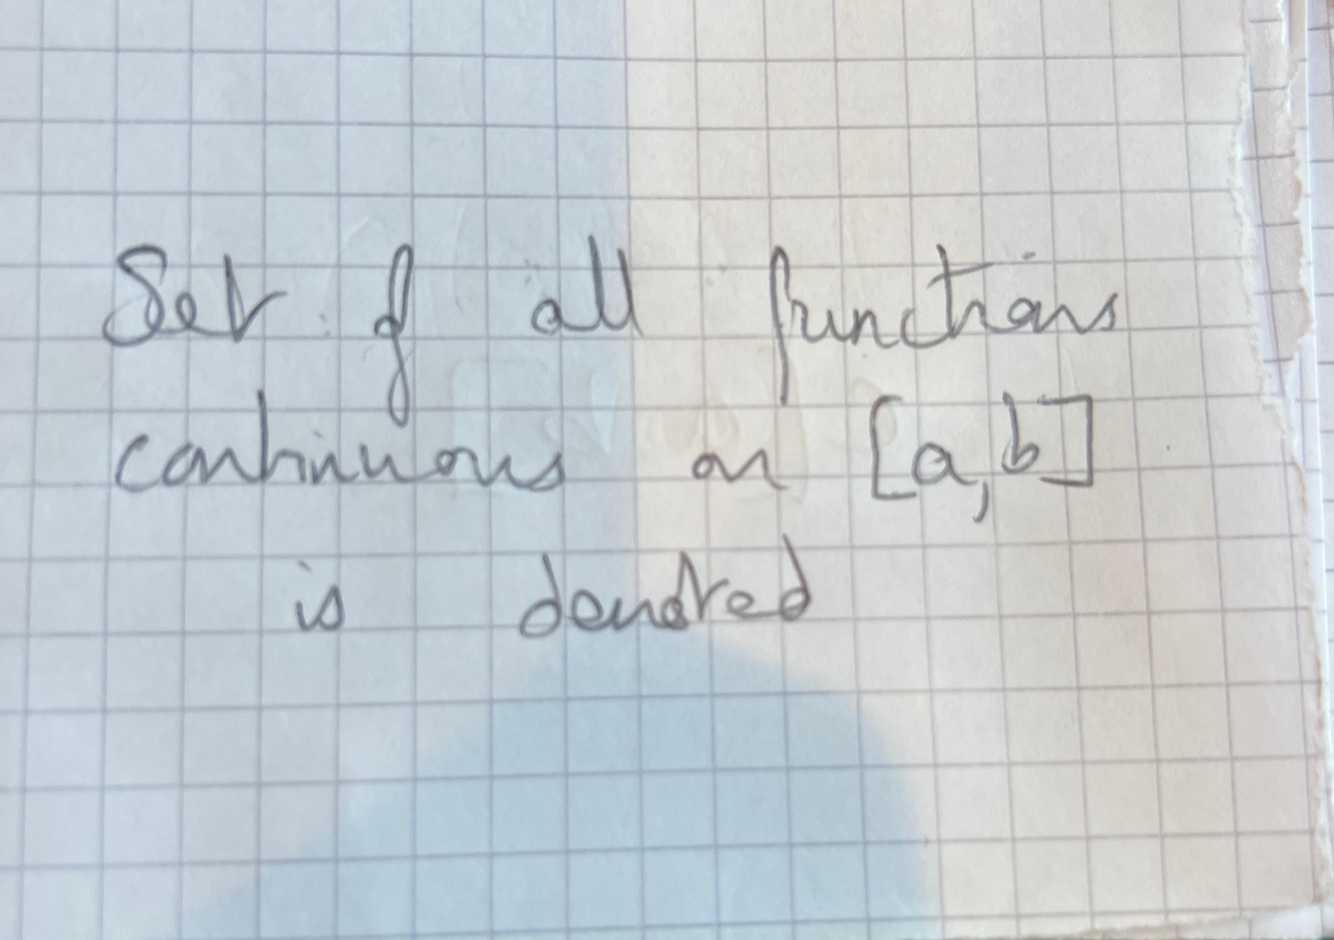 Set of all functions
continuous on [a,b]
is denoted